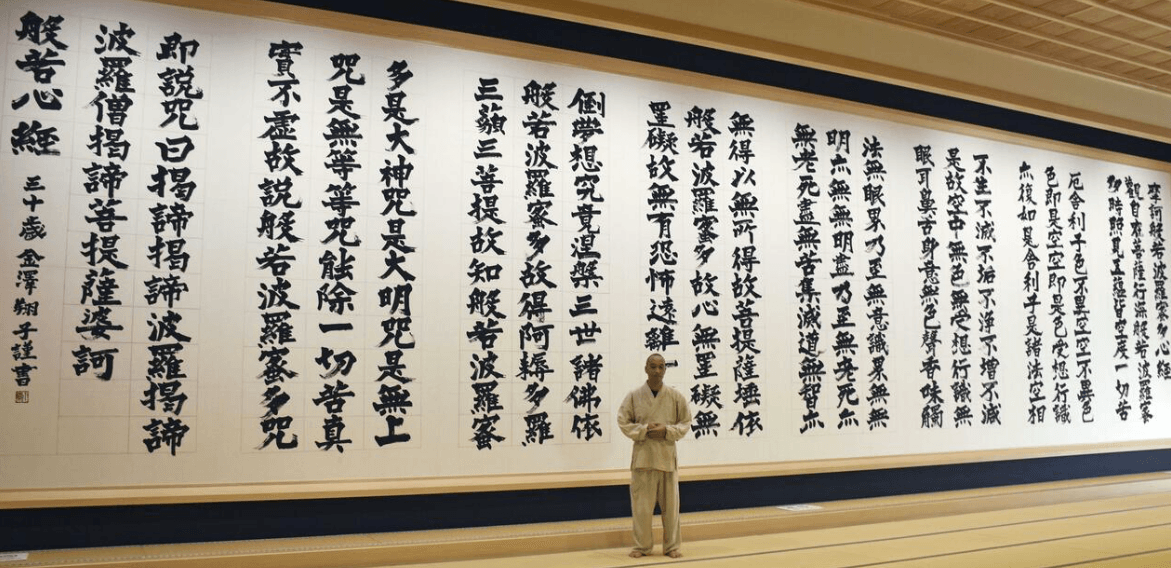 摩訶般若波羅蜜多心經
觀自在菩薩行深般若波羅蜜
多時照見五蘊皆空度一切苦
厄舍利子色不異空空不異色
色即是空空即是色受想行識
亦復如是舍利子是諸法空相
不生不滅不垢不淨不增不減
是故空中無色無受想行識無
眼耳鼻舌身意無色聲香味觸
法無眼界乃至無意識界無無
明亦無無明盡乃至無老死亦
無老死盡無苦集滅道無智亦
無得以無所得故菩提薩埵依
般若波羅蜜多故心無罣礙無
罣礙故無有恐怖遠離一
倒夢想究竟涅槃三世諸佛依
般若波羅蜜多故得阿耨多羅
三藐三菩提故知般若波羅蜜
多是大神咒是大明咒是無上
咒是無等等咒能除一切苦真
實不虛故説般若波羅蜜多咒
即説咒曰揭諦揭諦波羅揭諦
波羅僧揭諦菩提薩婆訶
般若心經
三十歳 金澤翔子謹書